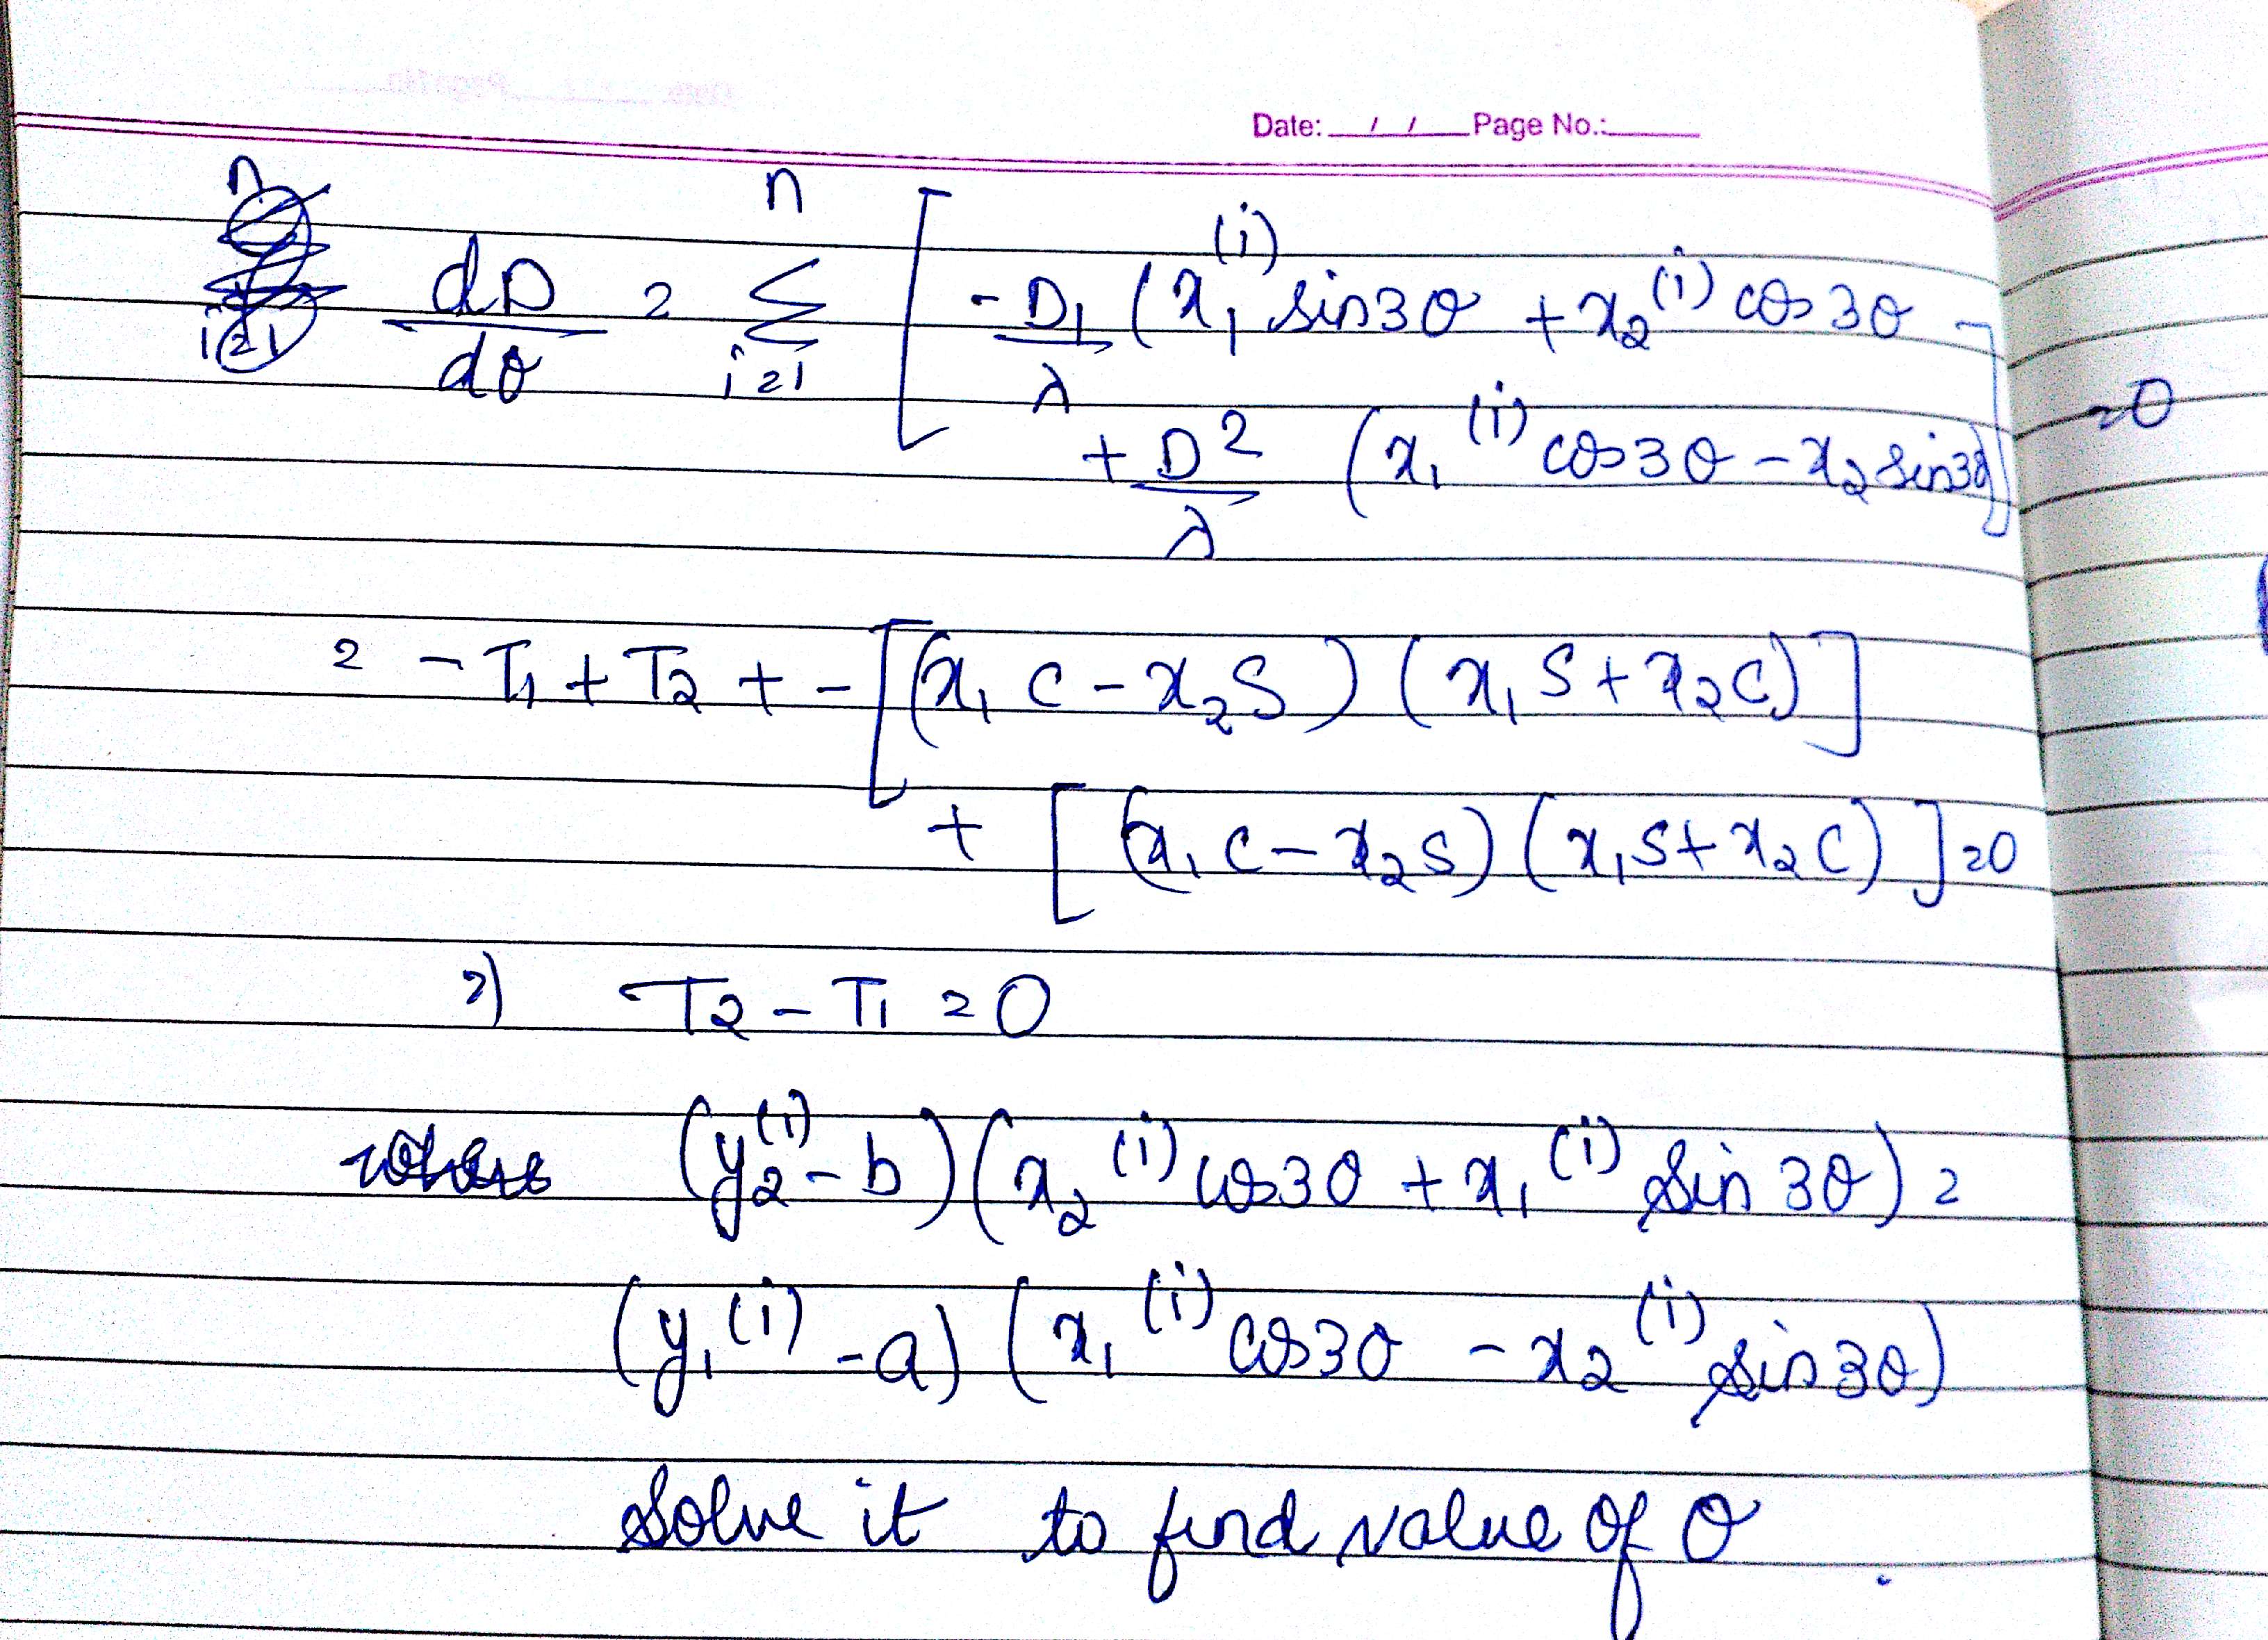 Date: / / Page No.:
dD/dθ = n Σ i=1 [ -D1/λ (x1^(i) sin3θ + x2^(i) cos3θ
+ D2/λ (x1^(i) cos3θ - x2 sin3θ) ] =0
= -T1 + T2 + -[(x1 c - x2 s) (x1 s + x2 c)]
+ [(x1 c - x2 s) (x1 s + x2 c)] =0
=) T2 - T1 = 0
where (y2^(i) - b) (x2^(i) cos3θ + x1^(i) sin 3θ) =
(y1^(i) - a) (x1^(i) cos3θ - x2^(i) sin3θ)
Solve it to find value of θ.